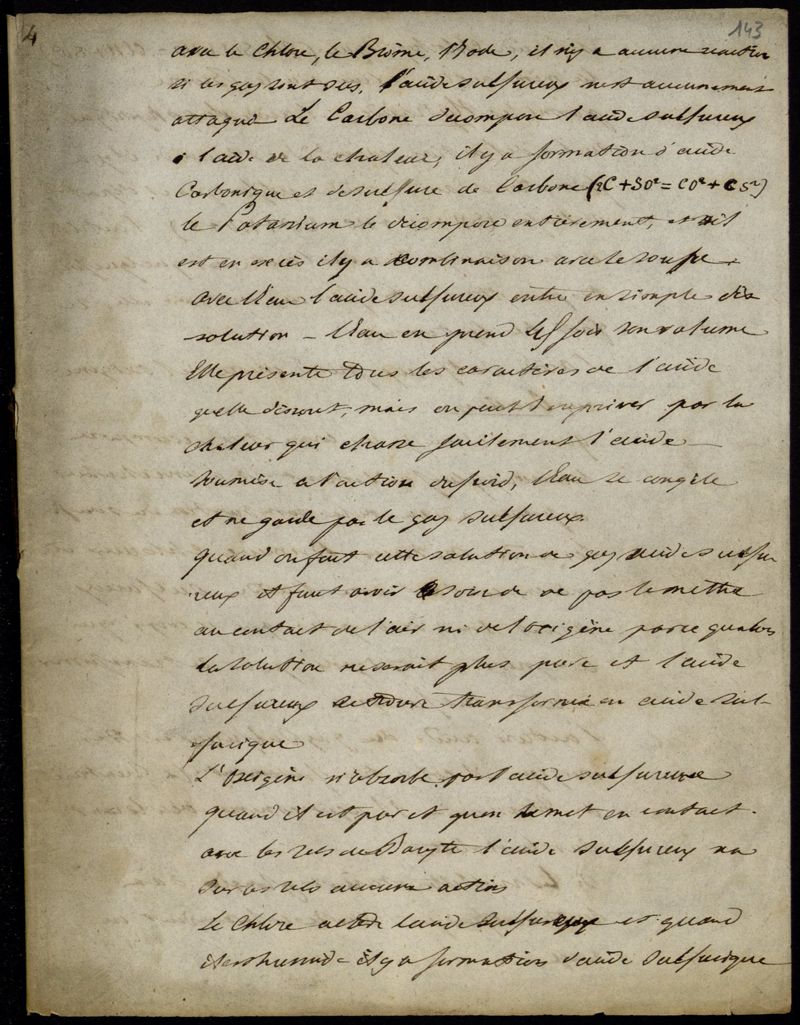 4
143
avec le Chlore, le Brôme, l'Iode, il n'y a aucune reaction
si les gaz sont secs. l'acide sulfureux n'est aucunement
attaqué Le Carbone décompose l'acide sulfureux
à l'aide de la chaleur, il y a formation d'acide
Carbonique et de sulfure de Carbone (2C + SO² = CO² + CS²)
le Potassium le décompose entièrement, et s'il
est en excès il y a combinaison avec le soufre.
avec l'Eau l'acide sulfureux entre en simple dis
solution – l'Eau en prend fois son volume
Elle présente tous les caractères de l'acide
qu'elle dissout, mais on peut l'en priver par la
chaleur qui chasse facilement l'acide
soumise a l'action du froid, l'Eau se congèle
et ne garde pas le gaz sulfureux.
quand on fait cette solution de gaz acide sulfu
reux il faut avoir soin de ne pas le mettre
au contact de l'air ni de l'oxigène parce qu'alors
la solution ne serait plus pure et l'acide
sulfureux transformé en acide sul-
furique
L'Oxigène n'absorbe pas l'acide sulfureux
quand il est pur et qu'on le met en contact.
avec les sels de Baryte l'acide sulfureux n'a
sur ces sels aucune action
Le Chlore l'acide sulfureux et quand
il est humide il y a formation d'acide sulfurique